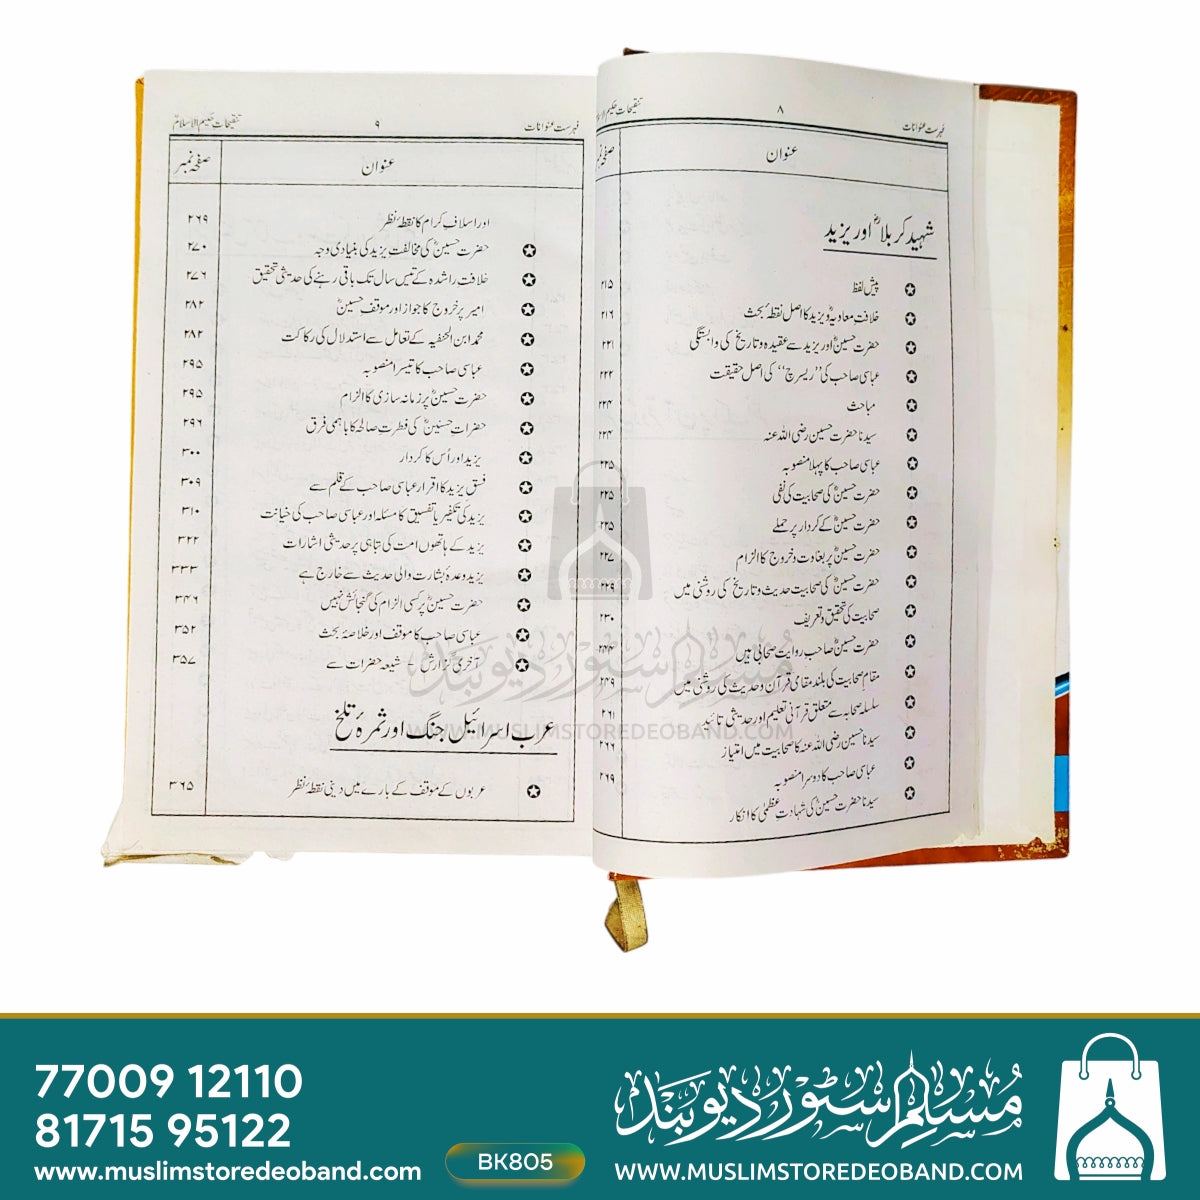 فہرست عنوانات
۸
تنقیحات حکیم الاسلام
عنوان
صفحہ نمبر
شہید کربلاؓ اور یزید
پیش لفظ ۲۱۵
خلافتِ معاویہؓ و یزید کا اصل نقطۂ بحث ۲۱۶
حضرت حسینؓ اور یزید سے عقیدہ و تاریخ کی وابستگی ۲۲۱
عباسی صاحب کی ’’ریسرچ‘‘ کی اصل حقیقت ۲۲۲
مباحث ۲۲۴
سیدنا حضرت حسین رضی اللہ عنہ ۲۲۴
عباسی صاحب کا پہلا منصوبہ ۲۲۵
حضرت حسینؓ کی صحابیت کی نفی ۲۲۵
حضرت حسینؓ کے کردار پر حملے ۲۲۵
حضرت حسینؓ پر بغاوت و خروج کا الزام ۲۲۷
حضرت حسینؓ کی صحابیت حدیث و تاریخ کی روشنی میں ۲۲۹
صحابیت کی تحقیق و تعریف ۲۳۰
حضرت حسینؓ صاحب روایت صحابی ہیں ۲۴۴
مقامِ صحابیت کی بلند مقامی قرآن و حدیث کی روشنی میں ۲۴۹
سلسلہ صحابہ سے متعلق قرآنی تعلیم اور حدیثی تائید ۲۶۱
سیدنا حسین رضی اللہ عنہ کا صحابیت میں امتیاز ۲۶۶
عباسی صاحب کا دوسرا منصوبہ ۲۶۹
سیدنا حضرت حسینؓ کی شہادتِ عظمیٰ کا انکار
فہرست عنوانات
۹
تنقیحات حکیم الاسلامؒ
عنوان
صفحہ نمبر
اور اسلافِ کرام کا نقطۂ نظر ۲۶۹
حضرت حسینؓ کی مخالفت یزید کی بنیادی وجہ ۲۷۰
خلافت راشدہ کے تیس سال تک باقی رہنے کی حدیثی تحقیق ۲۷۶
امیر پر خروج کا جواز اور موقف حسینؓ ۲۸۲
محمد ابن الحنفیہ کے تعامل سے استدلال کی رکاکت ۲۸۲
عباسی صاحب کا تیسرا منصوبہ ۲۹۵
حضرت حسینؓ پر زمانہ سازی کا الزام ۲۹۵
حضراتِ حسنینؓ کی فطرتِ صالحہ کا باہمی فرق ۲۹۶
یزید اور اُس کا کردار ۳۰۰
فسق یزید کا اقرار عباسی صاحب کے قلم سے ۳۰۹
یزید کی تکفیر یا تفسیق کا مسئلہ اور عباسی صاحب کی خیانت ۳۱۰
یزید کے ہاتھوں امت کی تباہی پر حدیثی اشارات ۳۲۲
یزید وعدۂ بشارت والی حدیث سے خارج ہے ۳۳۳
حضرت حسینؓ پر کسی الزام کی گنجائش نہیں ۳۴۶
عباسی صاحب کا موقف اور خلاصۂ بحث ۳۵۲
آخری گزارش - شیعہ حضرات سے ۳۵۷
عرب اسرائیل جنگ اور ثمرۂ تلخ
عربوں کے موقف کے بارے میں دینی نقطۂ نظر ۳۶۵
مسلم سٹور دیوبند
WWW.MUSLIMSTOREDEOBAND.COM
77009 12110
81715 95122
www.muslimstoredeoband.com
BK805
مسلم سٹور دیوبند
WWW.MUSLIMSTOREDEOBAND.COM